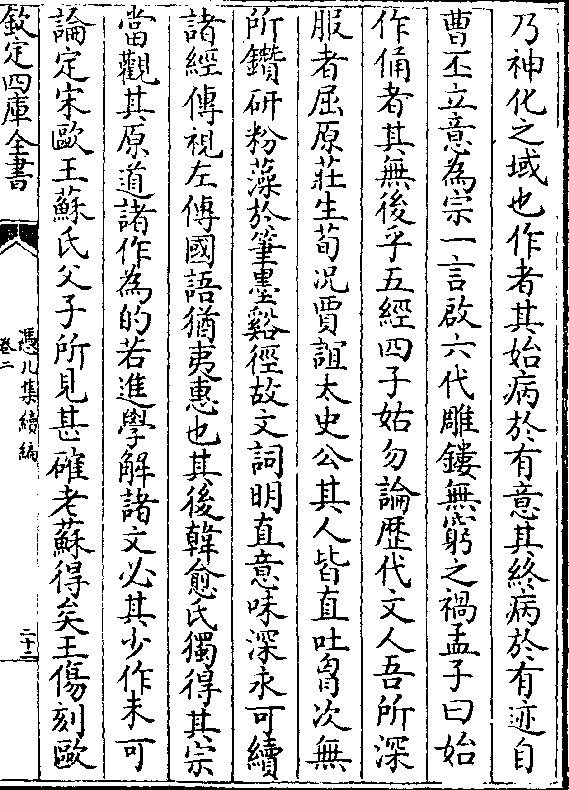 乃神化之域也作者其始病於有意其終病於有迹自
曹丕立意為宗一言啟六代雕鏤無窮之禍孟子曰始
作俑者其無後乎五經四子姑勿論歴代文人吾所深
服者屈原莊生荀况賈誼太史公其人皆直吐胷次無
所鑽研粉藻於筆墨谿徑故文詞明直意味深永可續
諸經傳視左傳國語猶夷惠也其後韓愈氏獨得其宗
當觀其原道諸作為的若進學解諸文必其少作未可
論定宋歐王蘇氏父子所見甚確老蘇得矣王傷刻歐
欽定四庫全書
憑几集續編
卷二
二十三